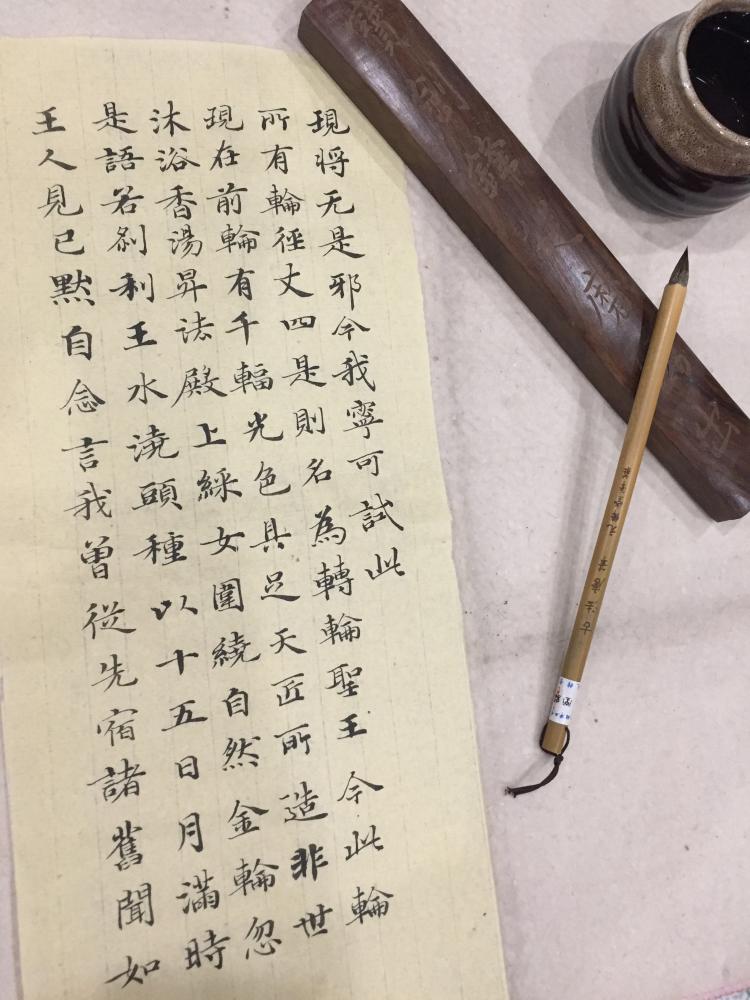 王人見已默自念言我曾從先宿諸舊聞如
是語若剎利王水澆頭種以十五日月滿時
沐浴香湯昇法殿上綵女圍繞自然金輪忽
現在前輪有千輻光色具足天匠所造非世
所有輪徑丈四是則名為轉輪聖王今此輪
現將无是邪今我寧可試此
寶劍鋒從磨礪出
古法唐筆